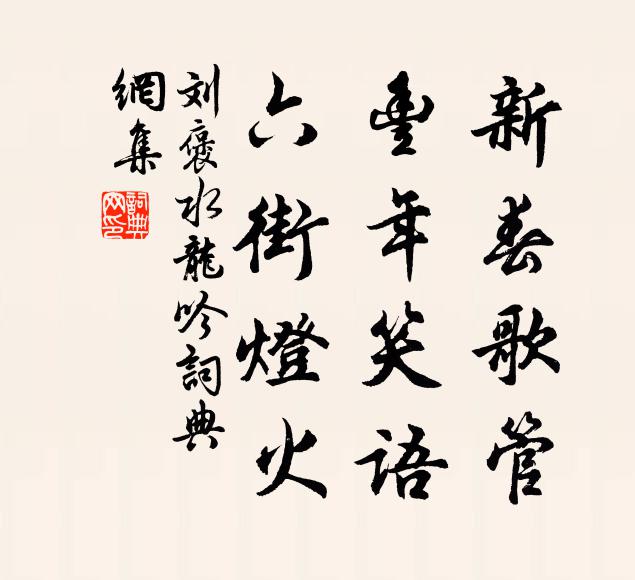 新春歌管
豐年笑語
六街燈火
刘褒水龍吟詞典
網集
詞典
网印